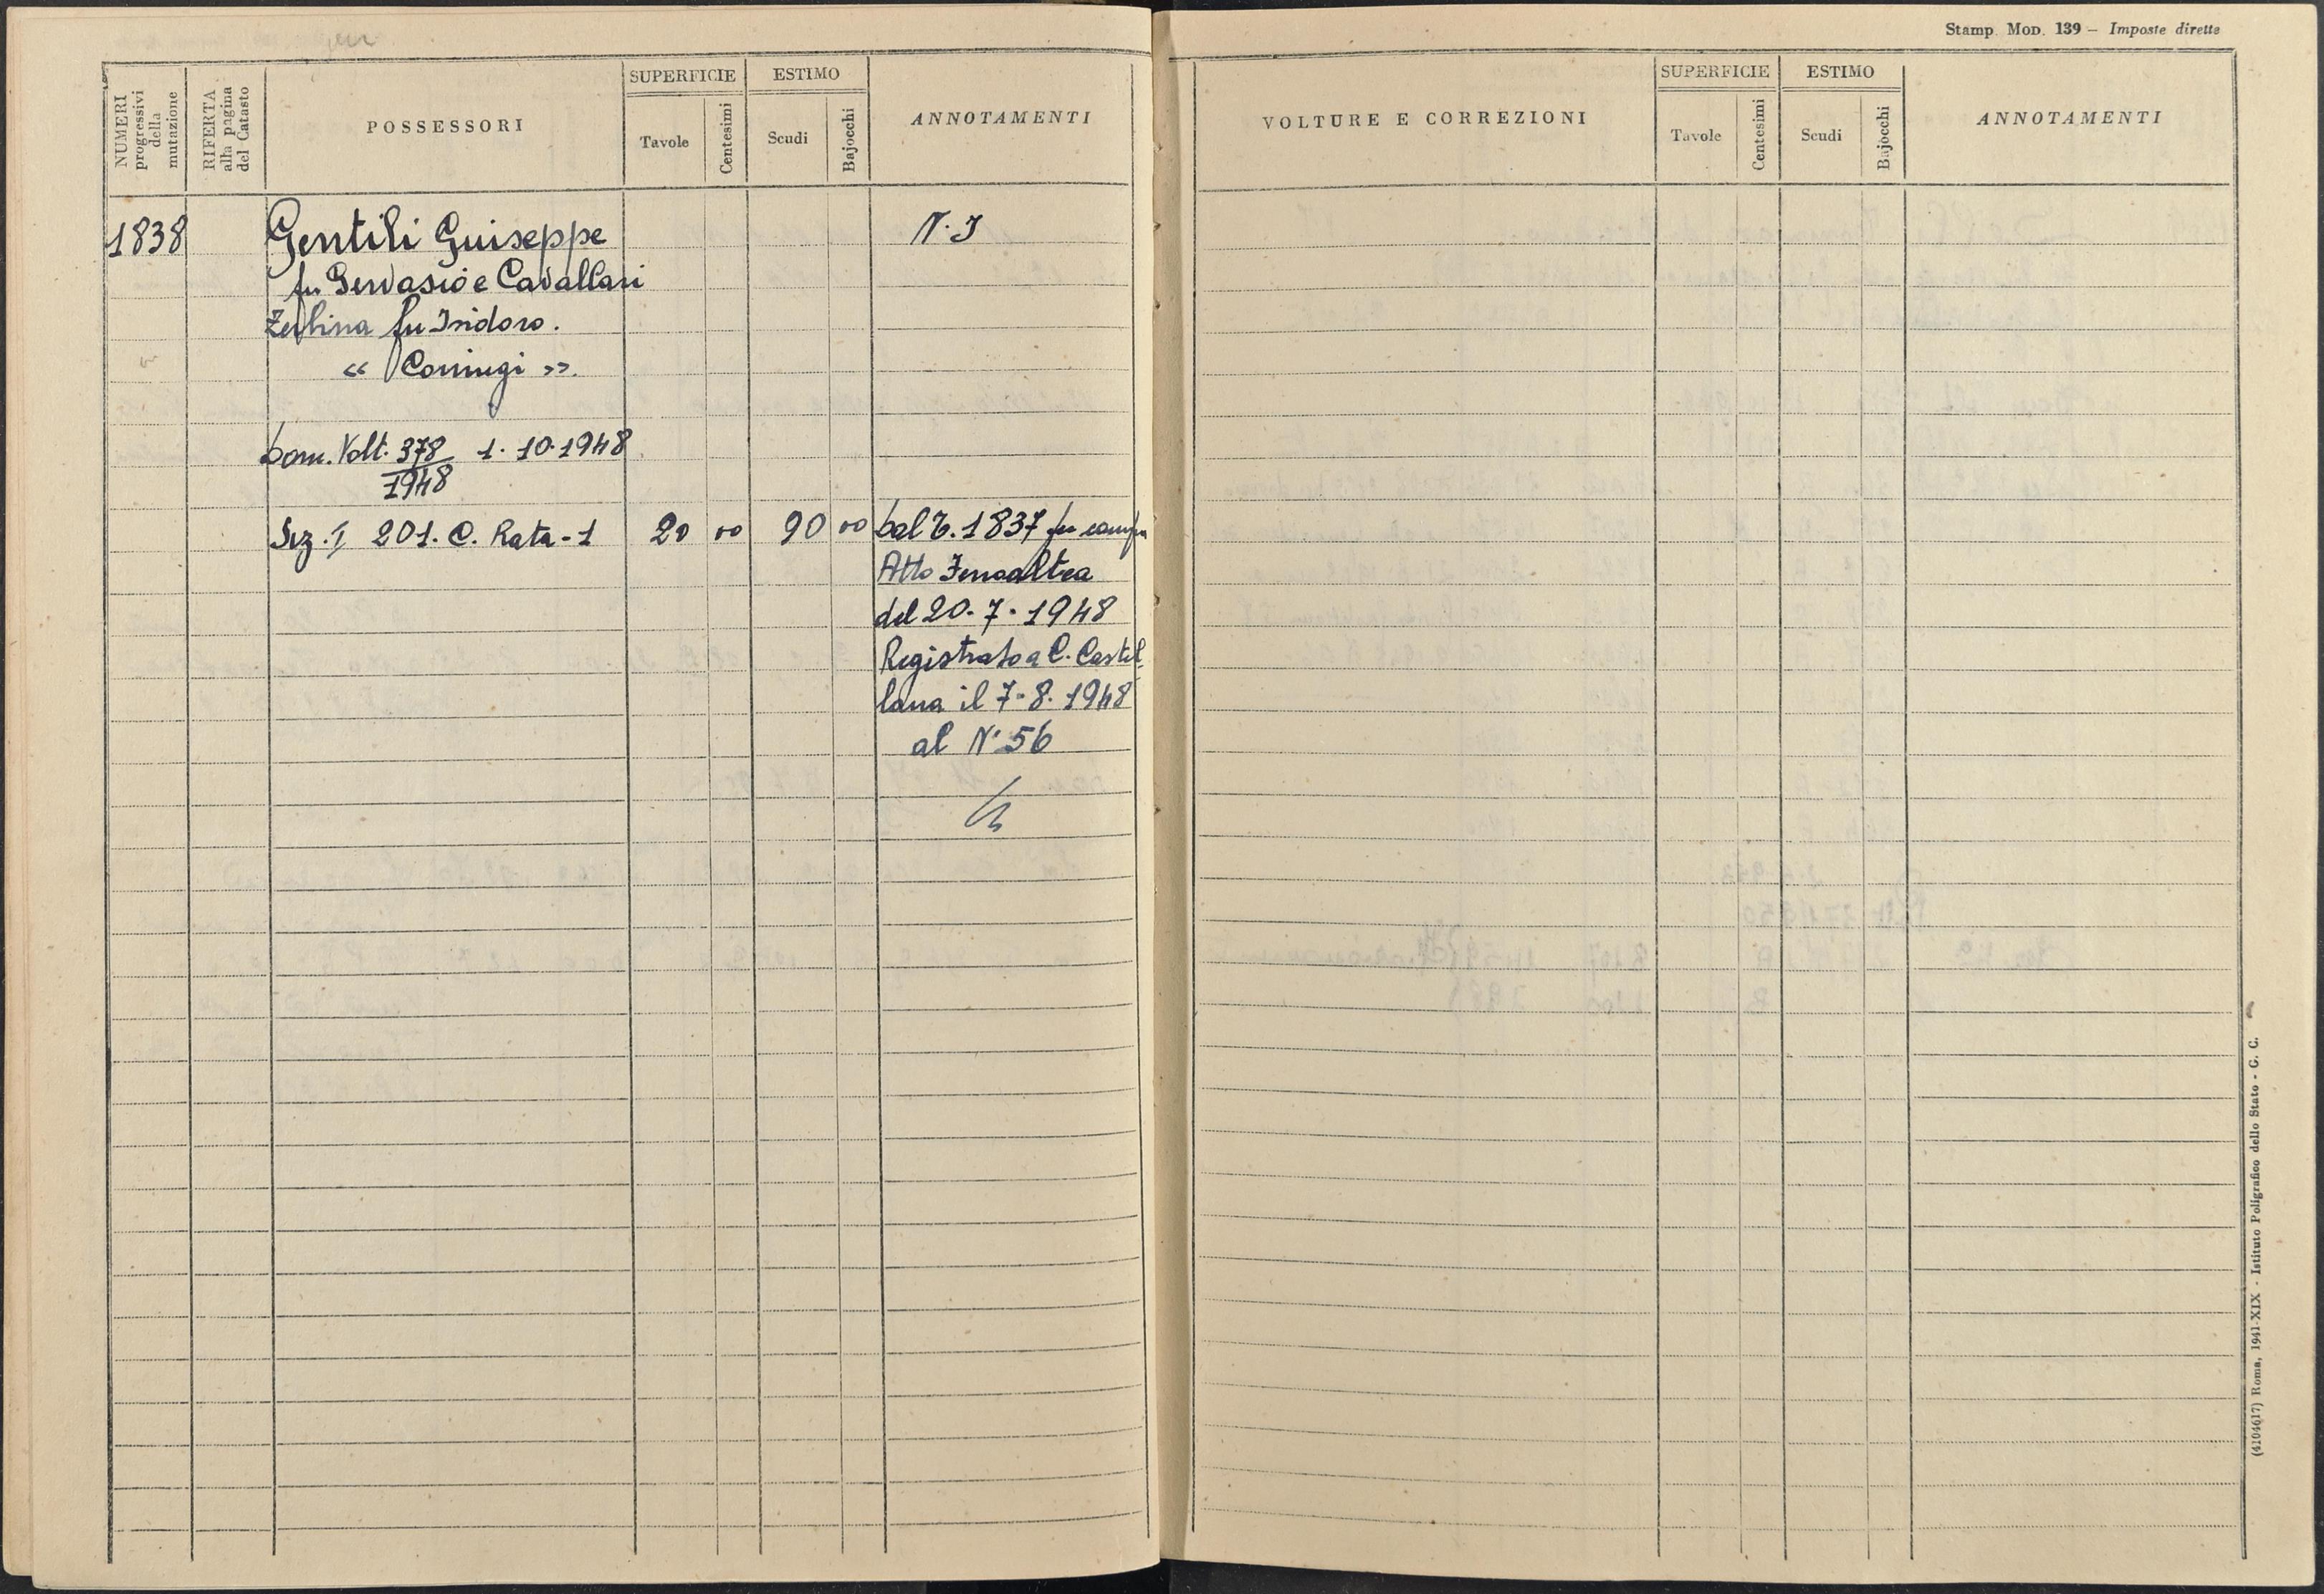 Stamp. Mod. 139 – Imposte dirette
NUMERI progressivi della mutazione
RIFERTA alla pagina del Catasto
POSSESSORI
SUPERFICIE
Tavole
Centesimi
ESTIMO
Scudi
Bajocchi
ANNOTAMENTI
VOLTURE E CORREZIONI
SUPERFICIE
Tavole
Centesimi
ESTIMO
Scudi
Bajocchi
ANNOTAMENTI
1838 Gentili Guiseppe N. 3
fu Gervasio e Cavallari
Zerbina fu Isidoro.
« Coniugi ».
Dom. Volt. 378 1. 10. 1948
1948
Sez. I 201. C. Rata-1 20 00 90 00 Dal T. 1837 per
Atto Fenoaltea
del 20. 7. 1948
Registrato a C. Castel
lana il 7-8. 1948
al N. 56
(4104617) Roma, 1941-XIX - Istituto Poligrafico dello Stato - G. C.